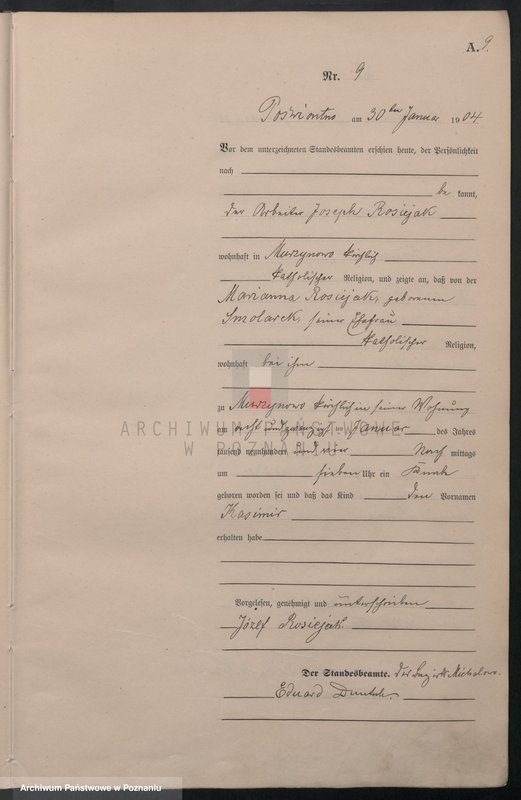 A. 9.
Nr. 9
am 30ten Januar 1904
Vor dem unterzeichneten Standesbeamten erschien heute, der Persönlichkeit
nach
be kannt,
der Arbeiter Joseph Rosiejak
wohnhaft in Murzynowo kirchlich
katholischer Religion, und zeigte an, daß von der
Marianna Rosiejak, geborenen
Smolarek, seiner Ehefrau
katholischer Religion,
wohnhaft bei ihm
zu Murzynowo kirchlich in seiner Wohnung
am acht und zwanzigsten Januar des Jahres
tausend neunhundert und vier Nach mittags
um sieben Uhr ein Knabe
geboren worden sei und daß das Kind den Vornamen
Kasimir
erhalten habe
Vorgelesen, genehmigt und unterschrieben
Józef Rosiejak
Der Standesbeamte. des Bezirks
Eduard
ARCHIWUM PAŃSTWOWE
W POZNANIU
Archiwum Państwowe w Poznaniu